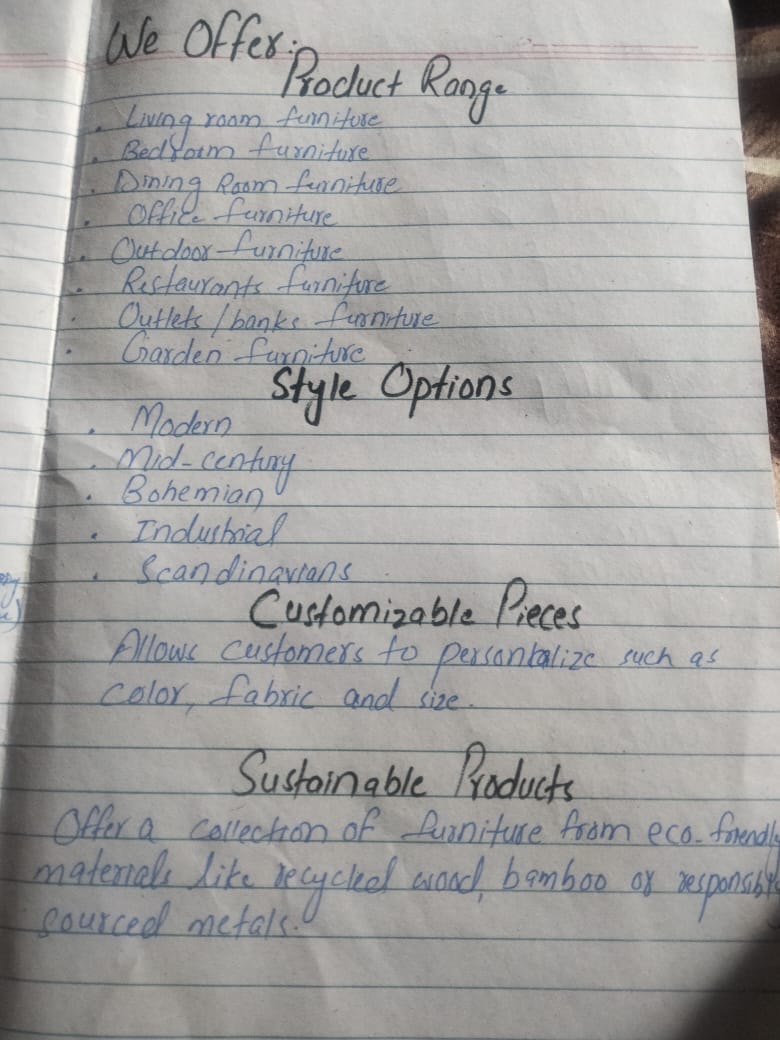 We Offer:
Product Range
. Living room furniture
. Bedroom furniture
. Dining Room furniture
. Office furniture
. Outdoor furniture
. Restaurants furniture
. Outlets / banks furniture
. Garden furniture
Style Options
. Modern
. Mid-century
. Bohemian
. Industrial
. Scandinavians
Customizable Pieces
Allows customers to personalize such as
color, fabric and size.
Sustainable Products
Offer a collection of furniture from eco-friendly
materials like recycled wood, bamboo or responsibly
sourced metals.